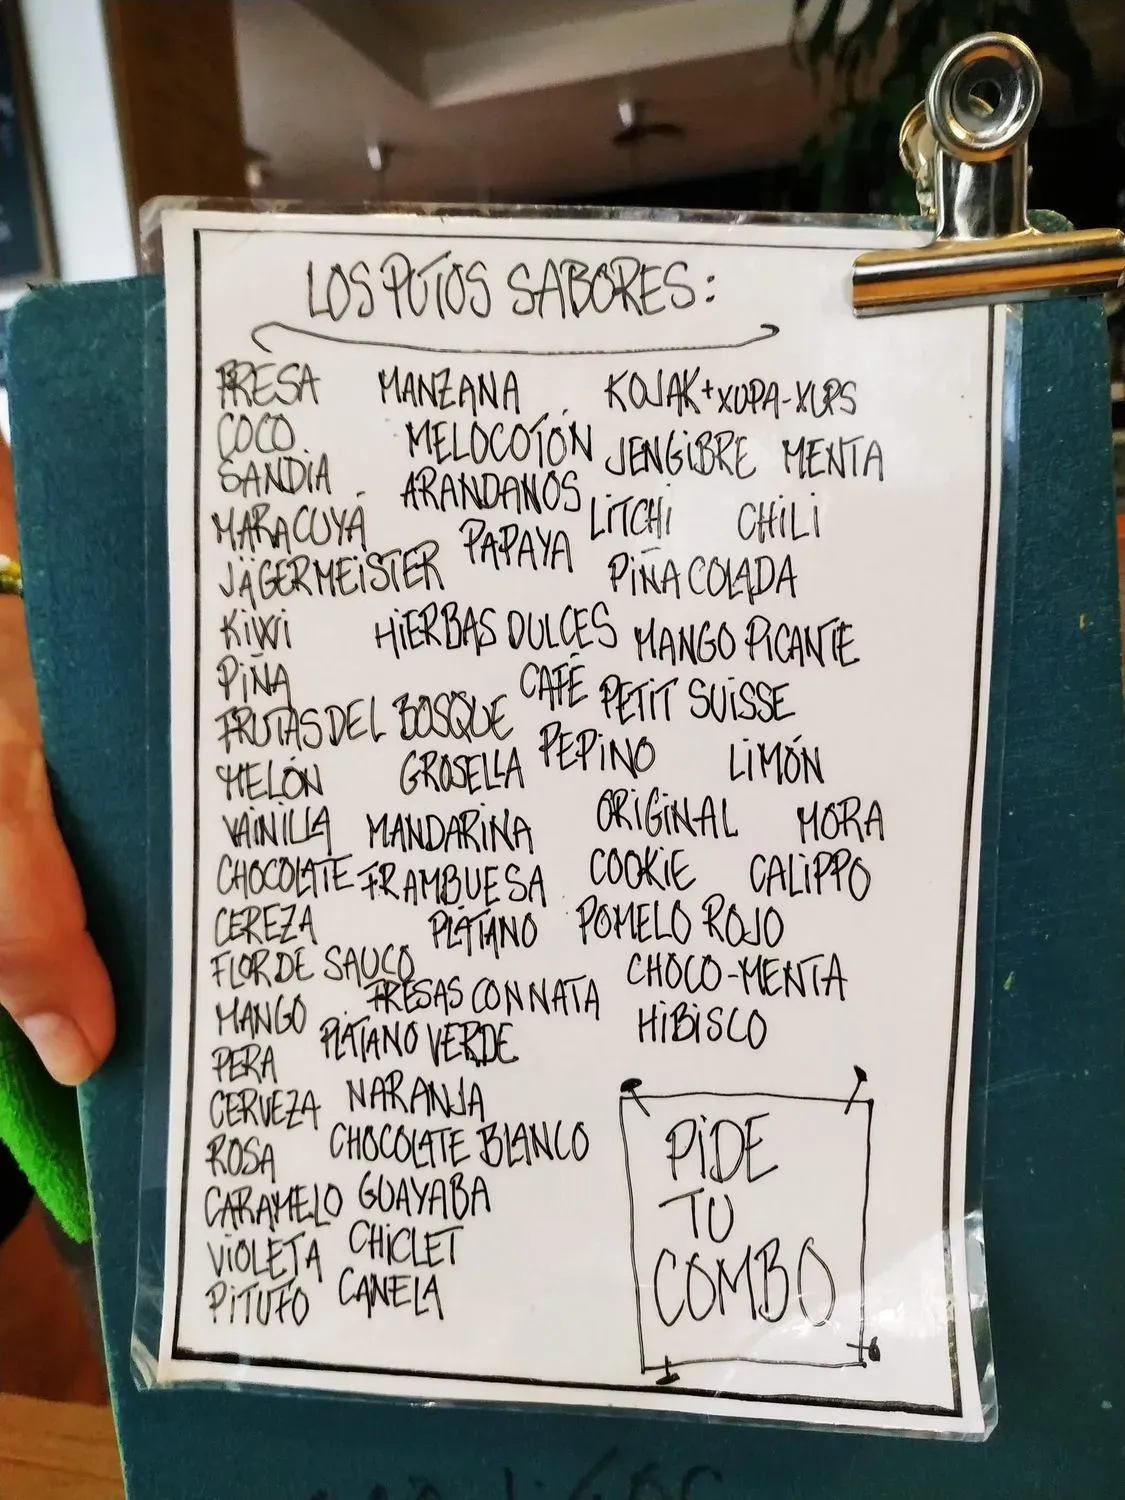 LOS PUTOS SABORES:
FRESA MANZANA KOJAK+XUPA-XUPS
COCO MELOCOTÓN JENGIBRE MENTA
SANDÍA ARANDANOS LITCHI CHILI
MARACUYÁ PAPAYA PIÑA COLADA
JÄGERMEISTER
KIWI HIERBAS DULCES MANGO PICANTE
PIÑA CAFÉ PETIT SUISSE
FRUTAS DEL BOSQUE PEPINO LIMÓN
MELÓN GROSELLA ORIGINAL MORA
VAINILLA MANDARINA COOKIE CALIPPO
CHOCOLATE FRAMBUESA POMELO ROJO
CEREZA PLÁTANO CHOCO-MENTA
FLOR DE SAUCO FRESAS CON NATA HIBISCO
MANGO PLÁTANO VERDE
PERA NARANJA
CERVEZA CHOCOLATE BLANCO
ROSA GUAYABA
CARAMELO CHICLET
VIOLETA CANELA
PITUFO
PIDE
TU
COMBO